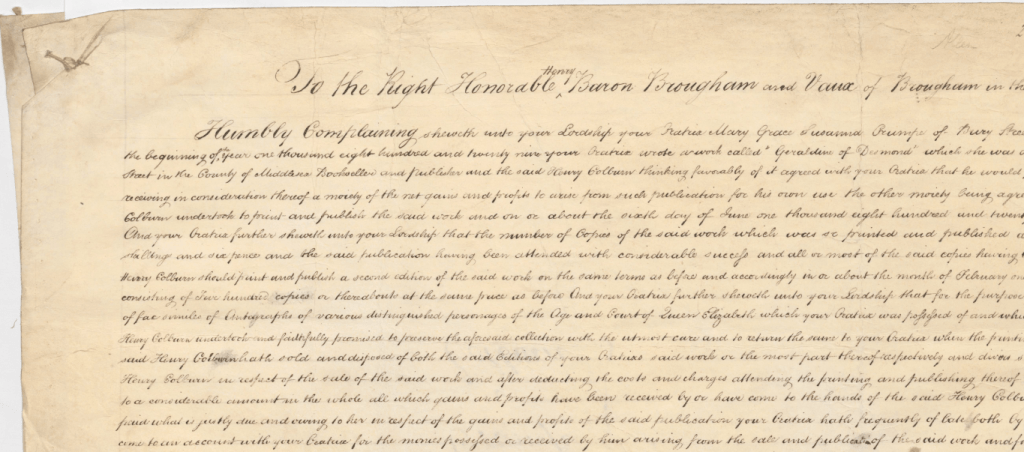 To the Right Honorable Henry Baron Brougham and Vaux of Brougham in the
Humbly Complaining sheweth unto your Lordship your Oratrix Mary Grace Susanna Crumpe of Bury Stree
the beginning of the year one thousand eight hundred and twenty nine your Oratrix wrote a work called "Geraldine of Desmond" which she was d
Street in the County of Middlesex Bookseller and publisher and the said Henry Colburn thinking favorably of it agreed with your Oratrix that he would
receiving in consideration thereof a moiety of the net gains and profits to arise from such publication for his own use the other moiety being agre
Colburn undertook to print and publish the said work and on or about the sixth day of June one thousand eight hundred and twent
And your Oratrix further sheweth unto your Lordship that the number of Copies of the said work which was so printed and published a
shillings and six pence and the said publication having been attended with considerable success and all or most of the said copies having
Henry Colburn should print and publish a second edition of the said work on the same terms as before and accordingly in or about the month of February on
consisting of Five hundred copies or thereabouts at the same price as before And your Oratrix further sheweth unto your Lordship that for the purpose
of fac similes of Autographs of various distinguished personages of the Age and Court of Queen Elizabeth which your Oratrix was possessed of and whic
Henry Colburn undertook and faithfully promised to preserve the aforesaid collection with the utmost care and to return the same to your Oratrix when the printin
said Henry Colburn hath sold and disposed of both the said Editions of your Oratrixs said work or the most part thereof respectively and divers s
Henry Colburn in respect of the sale of the said work and after deducting the costs and charges attending the printing and publishing thereof
to a considerable amount in the whole all which gains and profits have been received by or have come to the hands of the said Henry Colbu
paid what is justly due and owing to her in respect of the gains and profits of the said publication your Oratrix hath frequently of late both by
come to an account with your Oratrix for the monies possessed or received by him arising from the sale and publication of the said work and f